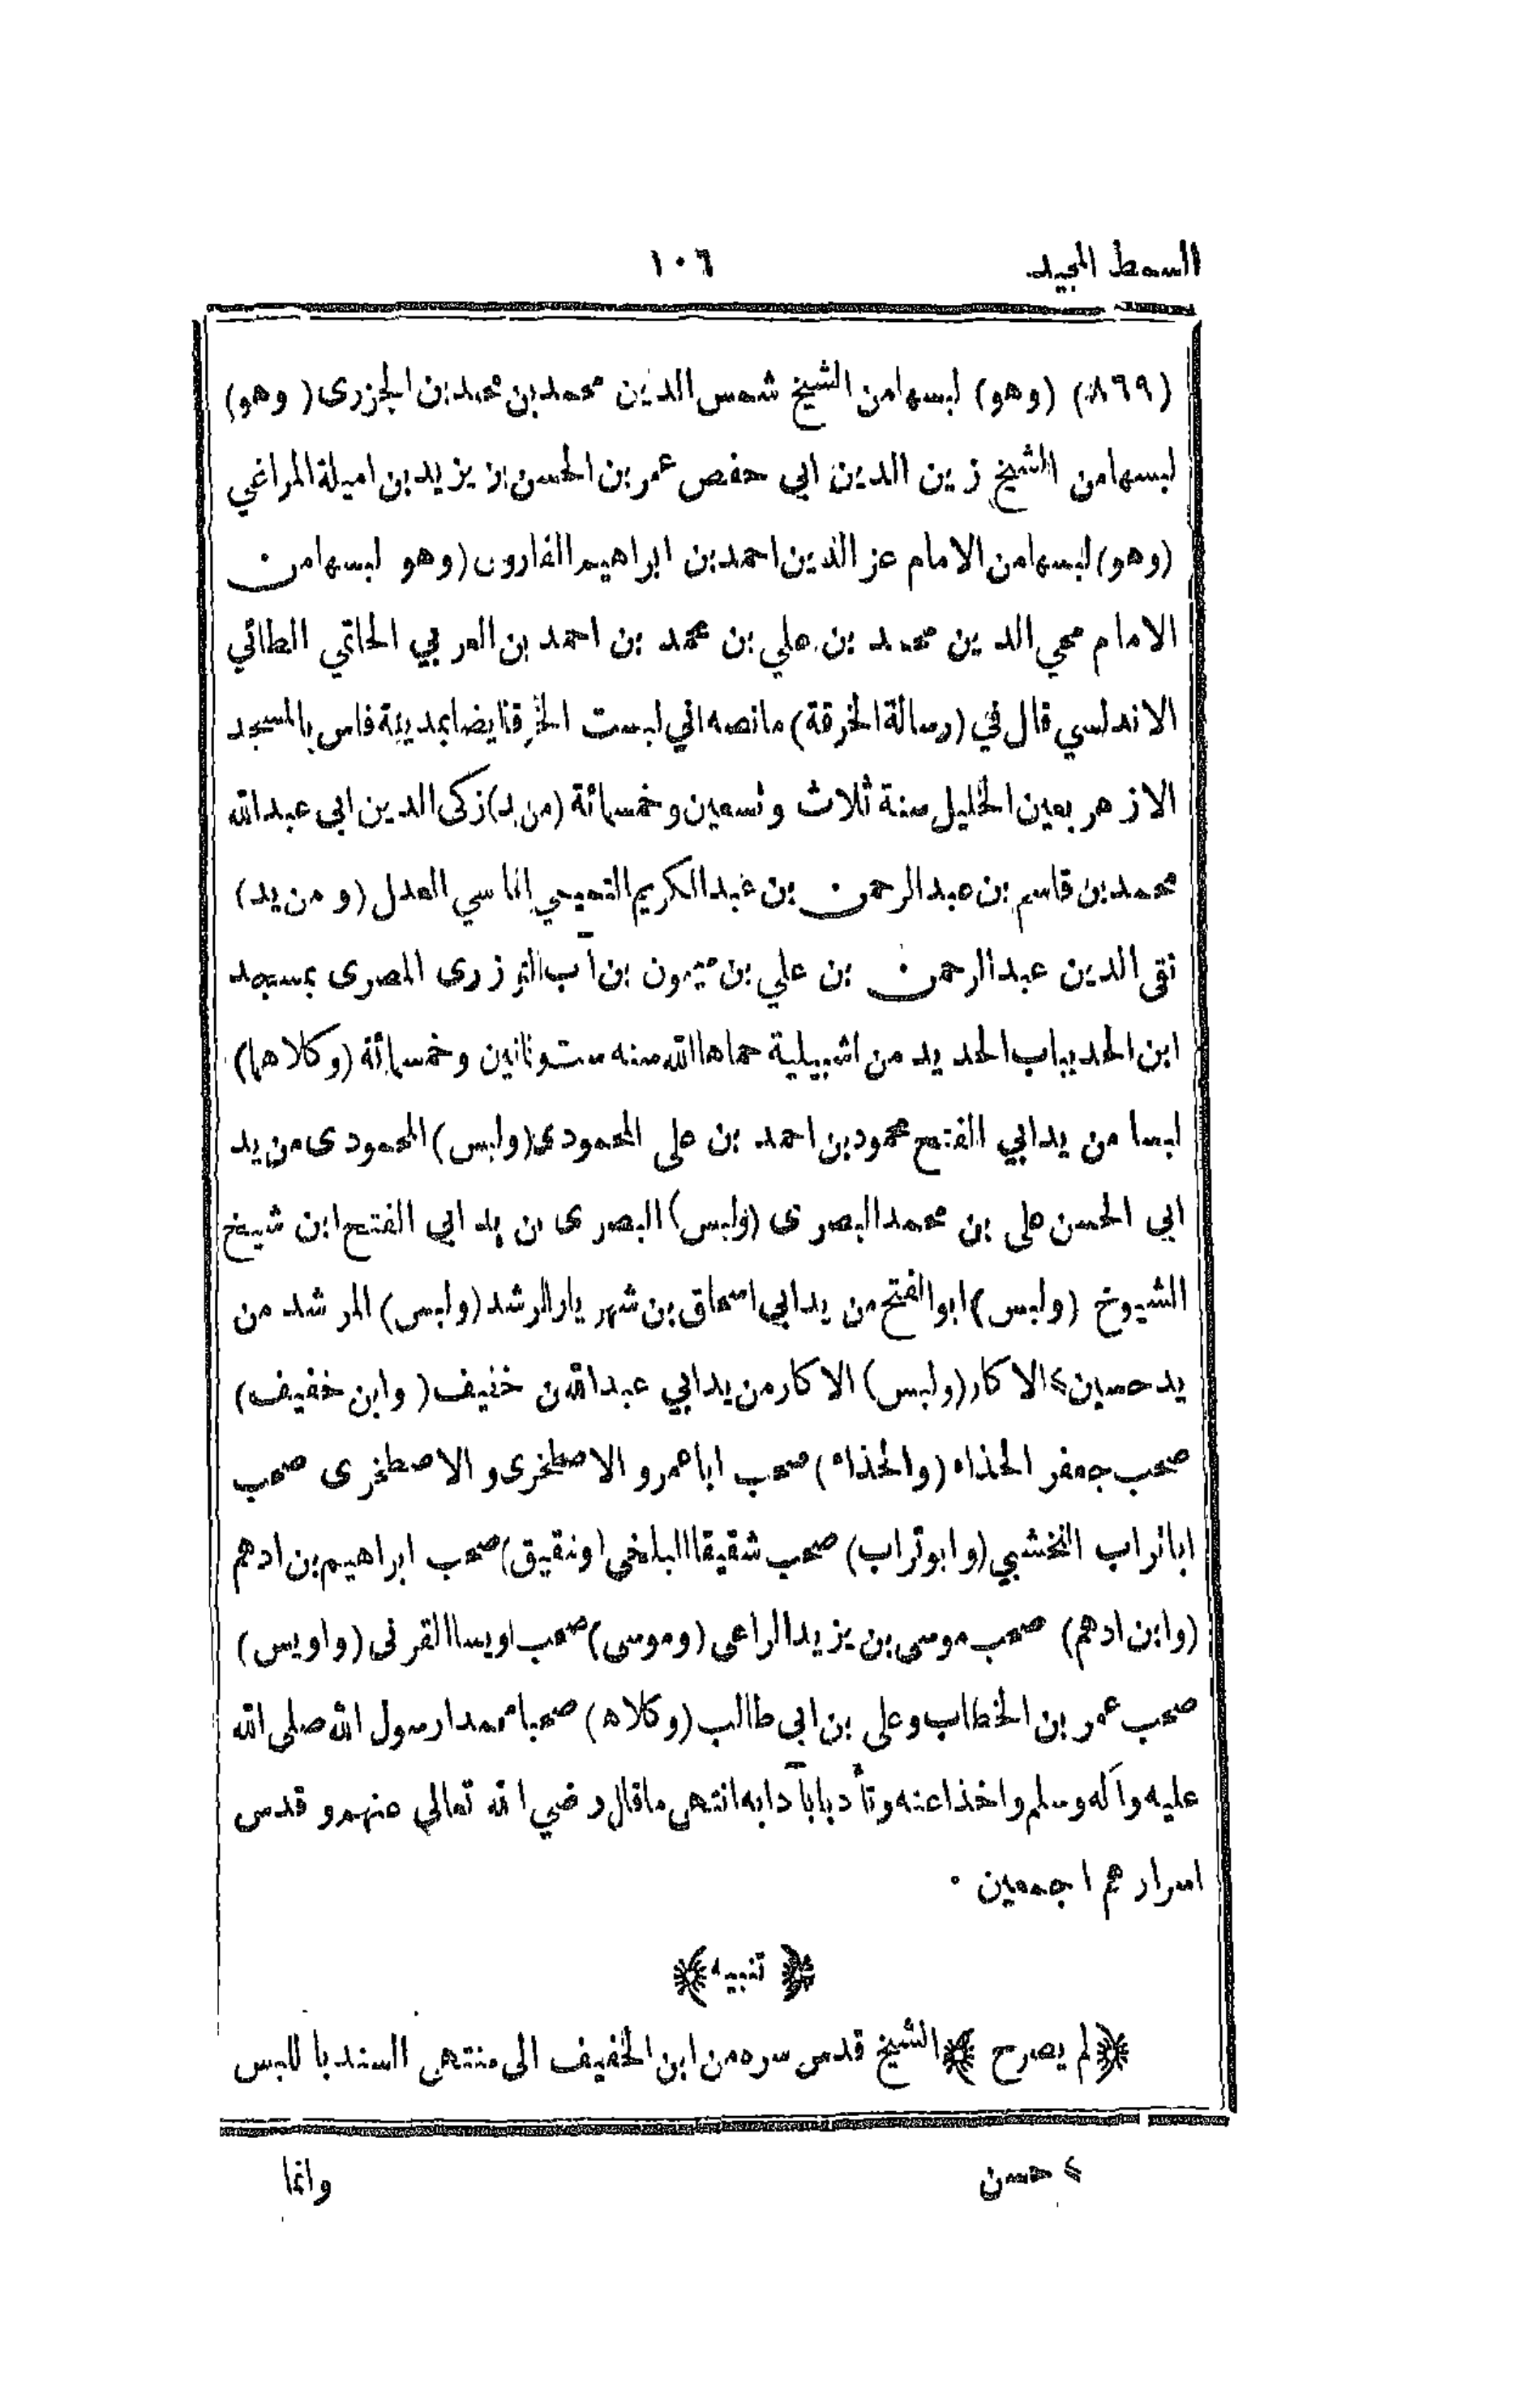 السمط المجيد ١٠٦
(٨٦٩) (وهو) لبسها من الشيخ شمس الدين محمد بن محمد بن الجزرى (وهو)
لبسها من الشيخ زين الدين ابي حفص عمر بن الحسن بن يزيد بن اميلة المراغي
(وهو) لبسها من الامام عز الدين احمد بن ابراهيم الفاروثى (وهو لبسها من
الامام محي الدين محمد بن علي بن محمد بن احمد بن العربي الحاتمي الطائي
الاندلسي قال في (رسالة الخرقة) ما نصه اني لبست الخرقة ايضا بمدينة فاس بالمسجد
الازهر بعين الخليل سنة ثلاث وتسعين وخمسمائة (من يد) زكى الدين ابي عبدالله
محمد بن قاسم بن عبدالرحمن بن عبدالكريم التميمي الفاسي العدل (ومن يد)
تقى الدين عبدالرحمن بن علي بن ميمون بن آب التوزرى المصرى بمسجد
ابن الحد بباب الحديد من اشبيلية حماها الله سنه ست وثمانين وخمسمائة (وكلاهما)
لبسا من يد ابي الفتح محمود بن احمد بن على المحمودى (ولبس) المحمودى من يد
ابي الحسن على بن محمد البصرى (ولبس) البصرى من يد ابي الفتح ابن شيخ
الشيوخ (ولبس) ابوالفتح من يد ابي اسحاق بن شهريار المرشد (ولبس) المرشد من
يد حسين ٤ الاكار (ولبس) الاكار من يد ابي عبدالله بن خفيف (وابن خفيف)
صحب جعفر الحذاء (والحذاء) صحب ابا عمرو الاصطخرى و الاصطخرى صحب
اباتراب النخشبي (وابوتراب) صحب شقيقا البلخي (وشقيق) صحب ابراهيم بن ادهم
(وابن ادهم) صحب موسى بن يزيد الراعى (وموسى) صحب اويسا القرنى (واويس)
صحب عمر بن الخطاب وعلى بن ابي طالب (وكلاه) صحبا محمدا رسول الله صلى الله
عليه وآله وسلم واخذا عنه وتأدبا بآدابه انتهى ما قال رضي الله تعالى عنهم وقدس
اسرارهم اجمعين ٠
﴿ تنبيه ﴾
﴿ لم يصرح ﴾ الشيخ قدس سره من ابن الخفيف الى منتهى السند باللبس
٤ حسن
وانما